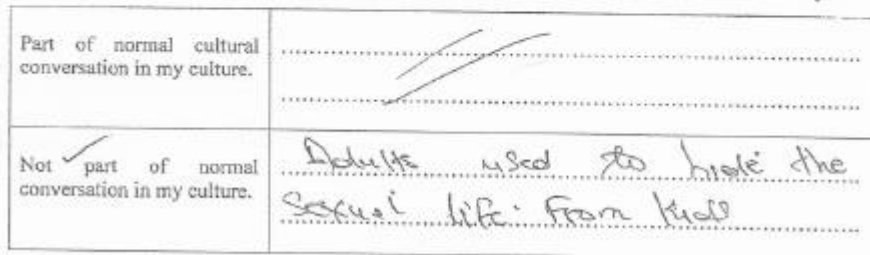 Part of normal cultural
conversation in my culture.
Not part of normal
conversation in my culture.
Adults used to hide the
Sexual life. From Kids